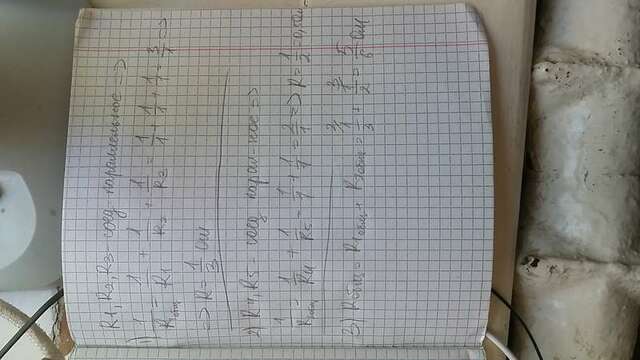 R1, R2, R3 - соед. параллельное =>
1) 1/R1общ = 1/R1 + 1/R2 + 1/R3 = 1/1 + 1/1 + 1/1 = 3/1 =>
=> R = 1/3 Ом
2) R4, R5 - соед. парал-ное =>
1/Rобщ = 1/R4 + 1/R5 = 1/1 + 1/1 = 2/1 => R = 1/2 = 0,5 Ом
3) Rобщ = R1общ + R2общ = 1/3 + 1/2 = 5/6 Ом